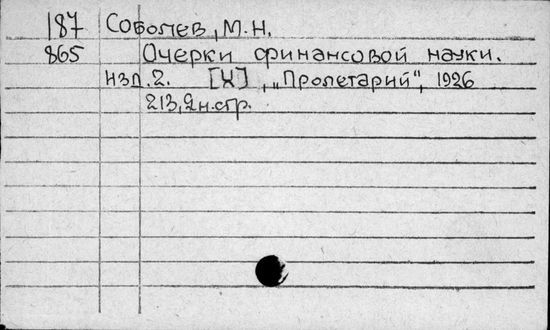 187 Соболев, М.Н.
865 Очерки финансовой науки.
изд.2. [Х], „Пролетарий“, 1926
213, 2н.стр.